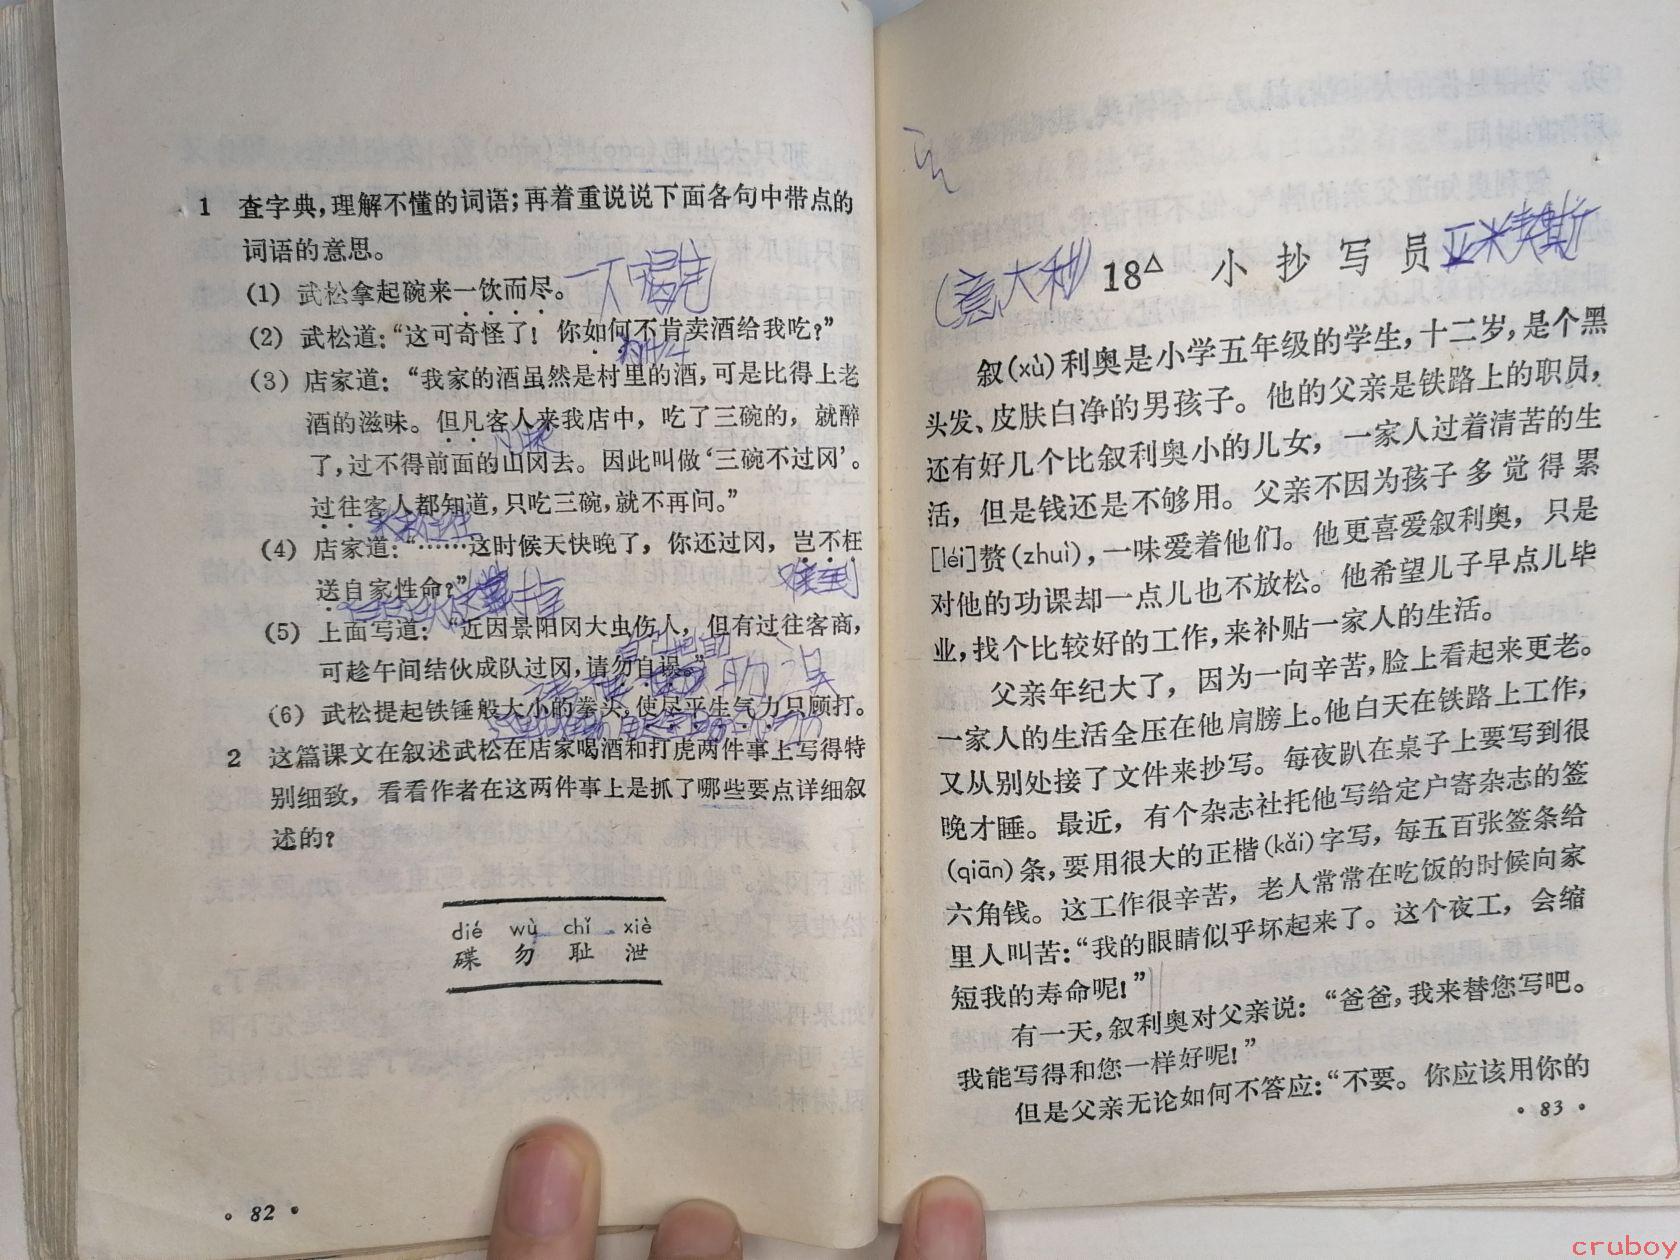 1 查字典，理解不懂的词语；再着重说说下面各句中带点的
词语的意思。
(1) 武松拿起碗来一饮而尽。
(2) 武松道：“这可奇怪了！你如何不肯卖酒给我吃？”
(3) 店家道：“我家的酒虽然是村里的酒，可是比得上老
酒的滋味。但凡客人来我店中，吃了三碗的，就醉
了，过不得前面的山冈去。因此叫做‘三碗不过冈’。
过往客人都知道，只吃三碗，就不再问。”
(4) 店家道：“……这时候天快晚了，你还过冈，岂不枉
送自家性命？”
难道
(5) 上面写道：“近因景阳冈大虫伤人，但有过往客商，
可趁午间结伙成队过冈，请勿自误。”
(6) 武松提起铁锤般大小的拳头，使尽平生气力只顾打。
2 这篇课文在叙述武松在店家喝酒和打虎两件事上写得特
别细致，看看作者在这两件事上是抓了哪些要点详细叙
述的？
dié wù chǐ xiè
碟 勿 耻 泄
·82·
(意大利) 18△ 小抄写员 亚米契斯
叙(xù)利奥是小学五年级的学生，十二岁，是个黑
头发、皮肤白净的男孩子。他的父亲是铁路上的职员，
还有好几个比叙利奥小的儿女，一家人过着清苦的生
活，但是钱还是不够用。父亲不因为孩子多觉得累
[léi]赘(zhuì)，一味爱着他们。他更喜爱叙利奥，只是
对他的功课却一点儿也不放松。他希望儿子早点儿毕
业，找个比较好的工作，来补贴一家人的生活。
父亲年纪大了，因为一向辛苦，脸上看起来更老。
一家人的生活全压在他肩膀上。他白天在铁路上工作，
又从别处接了文件来抄写。每夜趴在桌子上要写到很
晚才睡。最近，有个杂志社托他写给定户寄杂志的签
(qiān)条，要用很大的正楷(kǎi)字写，每五百张签条给
六角钱。这工作很辛苦，老人常常在吃饭的时候向家
里人叫苦：“我的眼睛似乎坏起来了。这个夜工，会缩
短我的寿命呢！”
有一天，叙利奥对父亲说：“爸爸，我来替您写吧。
我能写得和您一样好呢！”
但是父亲无论如何不答应：“不要。你应该用你的
·83·
cruboy